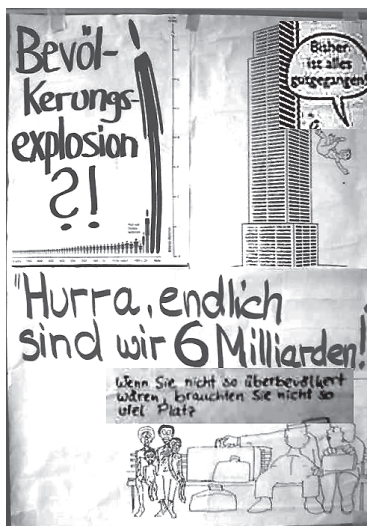 Bevöl-
kerungs-
explosion
?!
Bisher
ist alles
gutgegangen!
"Hurra, endlich
sind wir 6 Milliarden!
Wenn Sie nicht so überbevölkert
wären, brauchten Sie nicht so
viel Platz